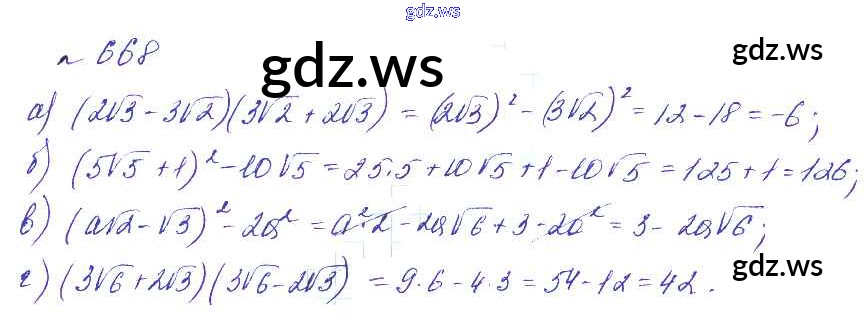 gdz.ws
№ 668
gdz.ws
gdz.ws
а) (2√3 - 3√2)(3√2 + 2√3) = (2√3)² - (3√2)² = 12 - 18 = -6;
б) (5√5 + 1)² - 10√5 = 25·5 + 10√5 + 1 - 10√5 = 125 + 1 = 126;
в) (a√2 - √3)² - 2a² = a²·2 - 2a√6 + 3 - 2a² = 3 - 2a√6;
г) (3√6 + 2√3)(3√6 - 2√3) = 9·6 - 4·3 = 54 - 12 = 42.
gdz.ws
gdz.ws